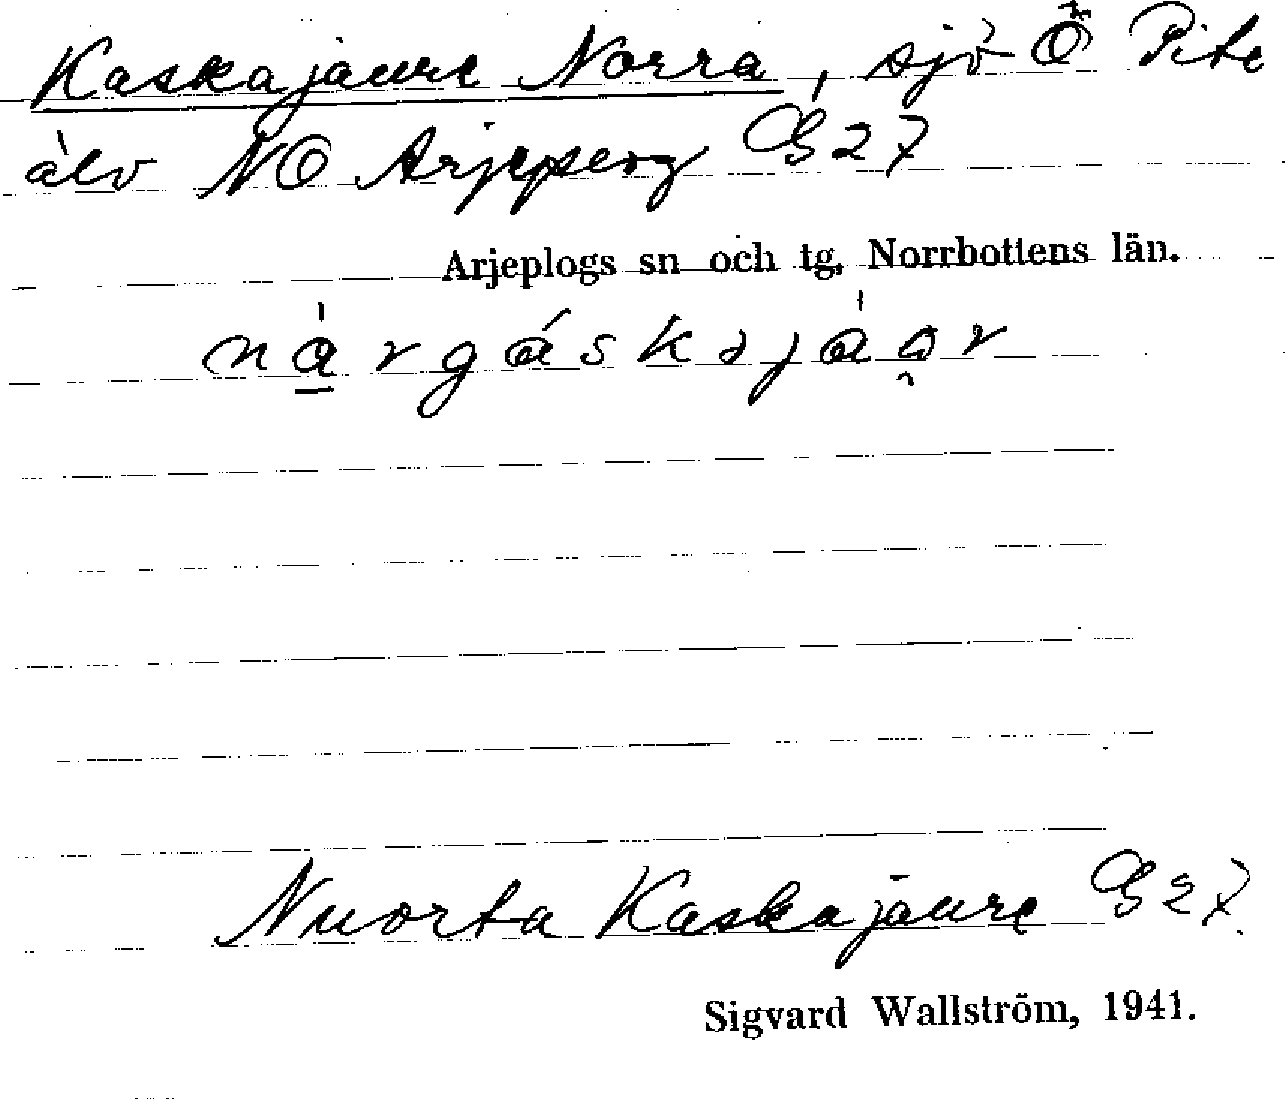 Kaskajaure Norra, sjö Ö Pite
älv NO Arjepeog G27
Arjeplogs sn och tg, Norrbottens län.
nạ̀rgáskəjàor
Nuorta Kaskajaure G27
Sigvard Wallström, 1941.